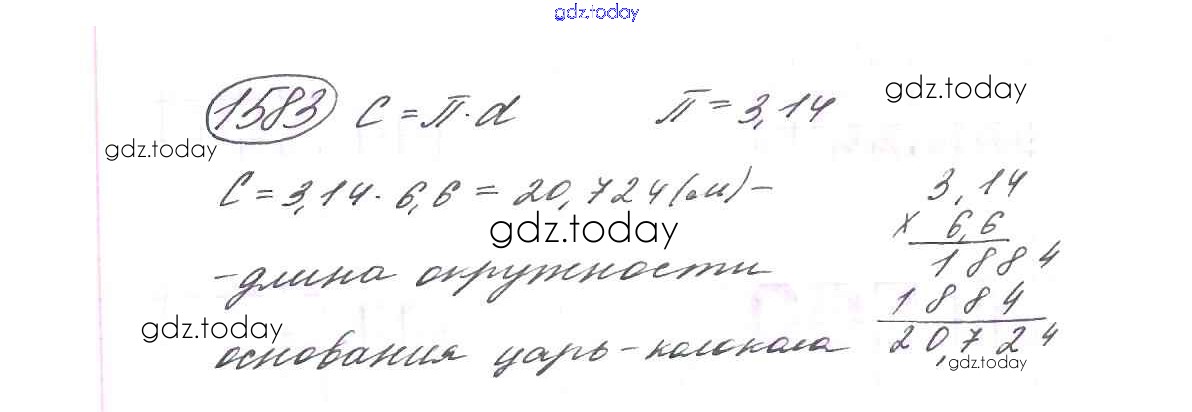 gdz.today
1583 C = π · d π = 3,14
gdz.today
gdz.today
C = 3,14 · 6,6 = 20,724 (м) –
gdz.today
- длина окружности
gdz.today
основания царь-колокола
3,14
x 6,6
1884
1884
20,724
gdz.today